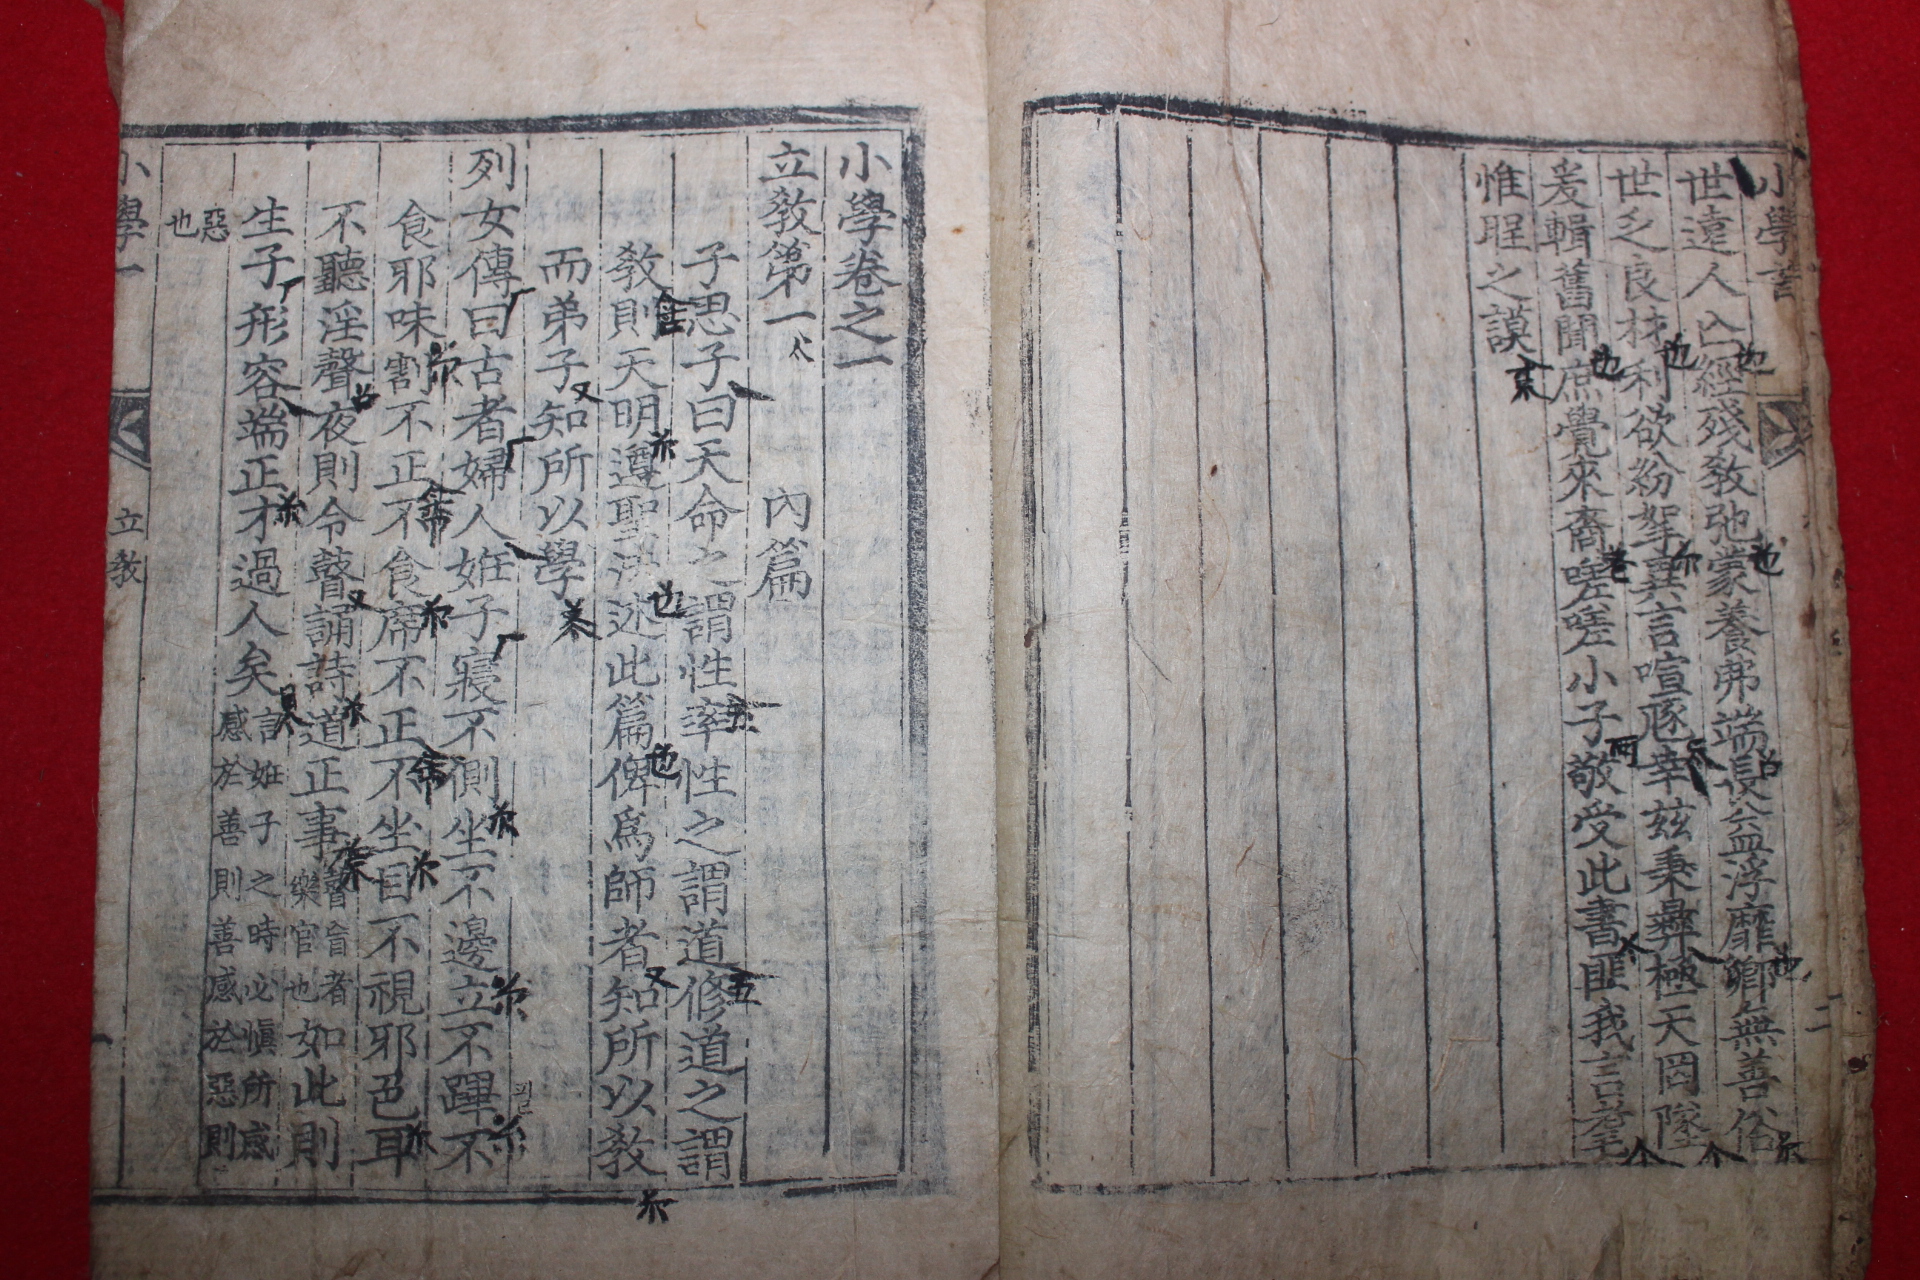 世遠人亾經殘敎弛蒙養弗端長益浮靡鄉無善俗
世乏良材利欲紛挐異言喧豗幸玆秉彝極天罔隊
爰輯舊聞庶覺來裔嗟嗟小子敬受此書匪我言耄
惟聖之謨
二
小學卷之一
立敎第一
內篇
子思子曰天命之謂性率性之謂道修道之謂
敎則天明遵聖法述此篇俾爲師者知所以敎
而弟子知所以學
列女傳曰古者婦人妊子寢不側坐不邊立不蹕不
食邪味割不正不食席不正不坐目不視邪色耳
不聽淫聲夜則令瞽誦詩道正事瞽盲者樂官也如此則
生子形容端正才過人矣言妊子之時必愼所感感於善則善感於惡則
惡也
小學一
立敎